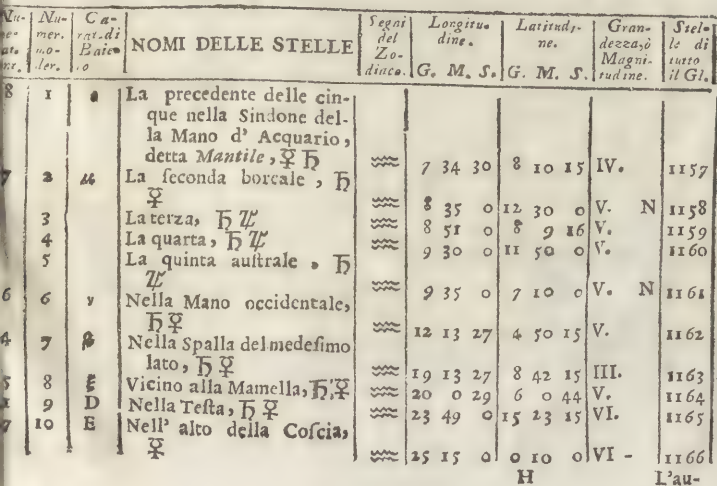 Nu- Nu- Ca- Segni Longitu- Latitudi- Gran- Stel-
mer. rat. di NOMI DELLE STELLE del dine. ne. dezza, ò le di
mo- Baie- Zo- Magni- tutto
der. ro diaco. G. M. S. G. M. S. tudine. il Gl.
8 1 La precedente delle cin-
que nella Sindone del-
la Mano d' Acquario,
detta Mantile, ♀ ♄ ♒ 7 34 30 8 10 15 IV. 1157
7 2 μ La ſeconda boreale, ♄
♀ ♒ 8 35 0 12 30 0 V. N 1158
3 La terza, ♄ ♃ ♒ 8 51 0 8 9 16 V. 1159
4 La quarta, ♄ ♃ ♒ 9 30 0 11 50 0 V. 1160
5 La quinta auſtrale. ♄
♃ ♒ 9 35 0 7 10 0 V. N 1161
6 6 ν Nella Mano occidentale,
♄ ♀ ♒ 12 13 27 4 50 15 V. 1162
4 7 β Nella Spalla del medeſimo
lato, ♄ ♀ ♒ 19 13 27 8 42 15 III. 1163
5 8 ξ Vicino alla Mamella, ♄, ♀ ♒ 20 0 29 6 0 44 V. 1164
1 9 D Nella Teſta, ♄ ♀ ♒ 23 49 0 15 23 15 VI. 1165
7 10 E Nell' alto della Coſcia,
♀ ♒ 25 15 0 0 10 0 VI - 1166
H L'au-